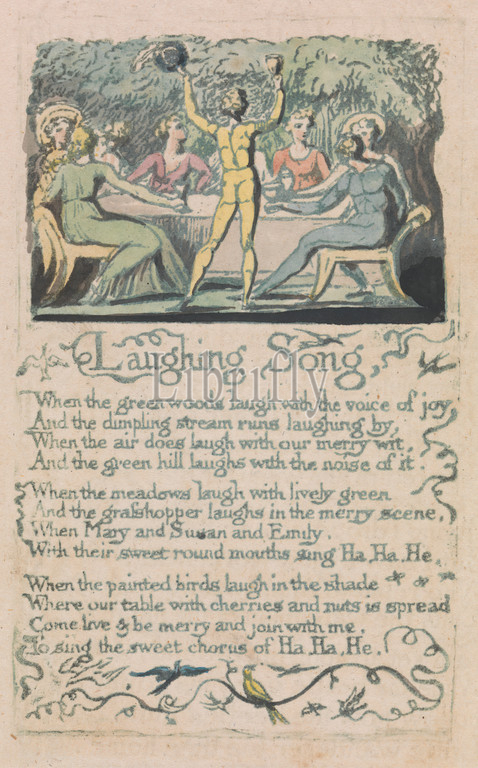 Laughing Song,
Librifly
When the green woods laugh with the voice of joy
And the dimpling stream runs laughing by,
When the air does laugh with our merry wit,
And the green hill laughs with the noise of it.
When the meadows laugh with lively green
And the graſshopper laughs in the merry scene,
When Mary and Susan and Emily,
With their sweet round mouths sing Ha, Ha, He,
When the painted birds laugh in the shade
Where our table with cherries and nuts is spread
Come live & be merry and join with me,
To sing the sweet chorus of Ha, Ha, He,